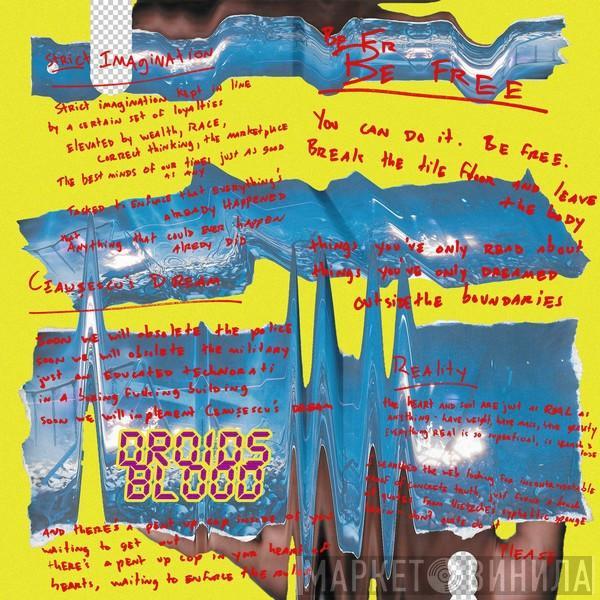 Strict IMAgination
Strict imagination kept in line
by a certain set of loyalties
elevated by wealth, RACE,
correct thinking, the marketplace
The best minds of our times just as good
as any
Tasked to enforce that everything's
already HAPPENED
that Anything that could EVER happen
Already did
Ceausescu's DREAM
SOON we will obsolete the police
soon we will obsolete the military
just an EDUCATED technorati
in a boring fucking building
soon we will implement Ceausescu's DREAM
DROIDS
BLOOD
AND thERE's a pent up cop inside of you
waiting to get out
thERE's a pent up cop in your heart of
hearts, waiting to enforce the rules
BE FR
BE FREE
You CAN DO it. BE FREE.
BREAK the tile floor AND LEAVE
the body
things you've only READ about
things you've only DREAMED
outside the bouNDARIES
REALity
the heart and soul are just as REAL as
anything - have weight, have mass, have gravity
Everything REAL is so
I searched the web looking for incontrovertible
proof of concrete truth, just found a bunch
of quotes from Nietzche's syphilitic
don't quite do it
PLEASE
МАРКЕТ ВИНИЛА